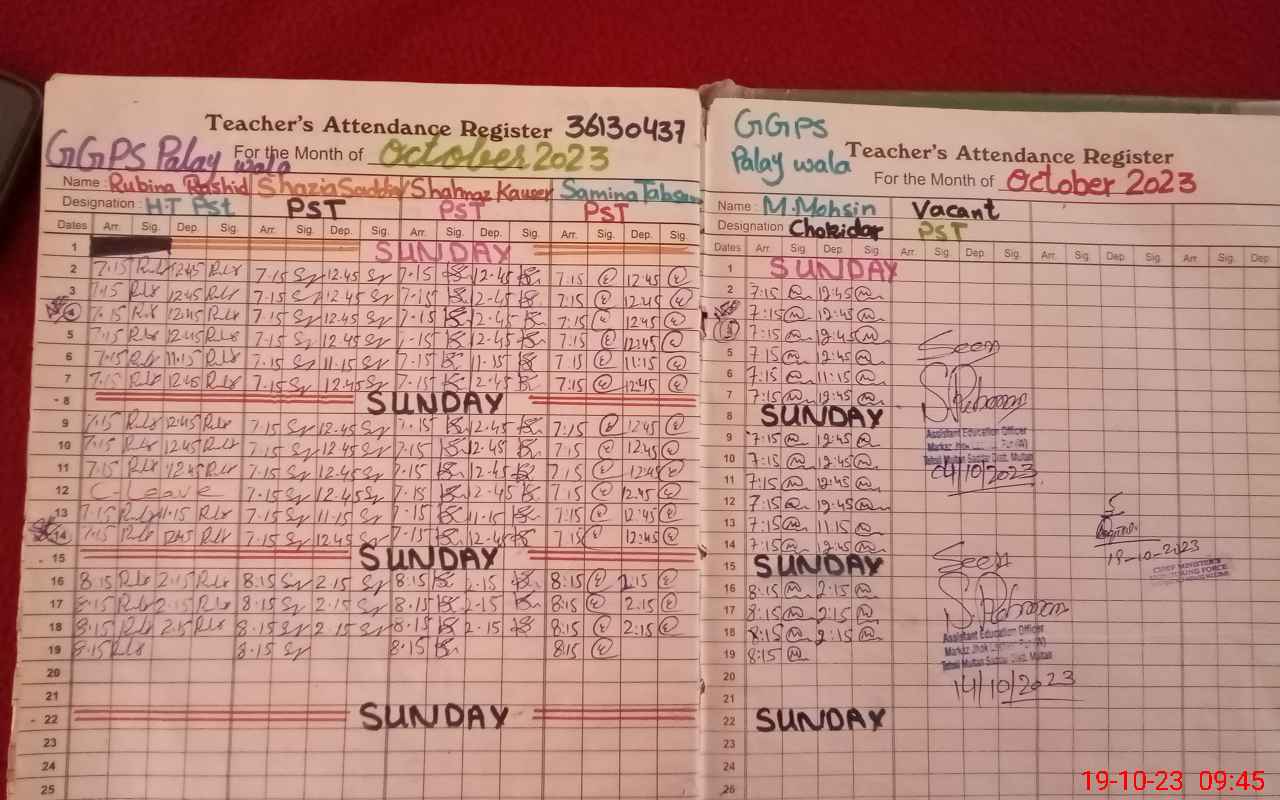 Teacher's Attendance Register 36130437
GGPS Palay wala For the Month of October 2023
Name : Rubina Rashid Shazia Shahnaz Kauser Samina
Designation : H.T Pst PST PST PST
Dates Arr. Sig. Dep. Sig. Arr. Sig. Dep. Sig. Arr. Sig. Dep. Sig. Arr. Sig. Dep. Sig.
1 SUNDAY
2 7.15 12.45 7.15 12.45 7.15 12.45 7:15 12:45
3 7.15 12.45 7.15 12.45 7.15 12.45 7:15 12:45
4 7.15 12.45 7.15 12.45 7.15 12.45 7:15 12:45
5 7.15 12.45 7.15 12.45 7.15 12.45 7:15 12:45
6 7.15 11.15 7.15 11.15 7.15 11.15 7:15 11:15
7 7.15 12.45 7.15 12.45 7.15 12.45 7:15 12:45
8 SUNDAY
9 7.15 12.45 7.15 12.45 7.15 12.45 7:15 12:45
10 7.15 12.45 7.15 12.45 7.15 12.45 7:15 12:45
11 7.15 12.45 7.15 12.45 7.15 12.45 7:15 12:45
12 C-Leave 7.15 12.45 7.15 12.45 7:15 12:45
13 7.15 11.15 7.15 11.15 7.15 11.15 7:15 12:45
14 7.15 12.45 7.15 12.45 7.15 12.45 7:15 12:45
15 SUNDAY
16 8.15 2.15 8.15 2.15 8.15 2.15 8:15 2:15
17 8.15 2.15 8.15 2.15 8.15 2.15 8:15 2:15
18 8.15 2.15 8.15 2.15 8.15 2.15 8:15 2:15
19 8.15 8.15 8.15 8:15
20
21
22 SUNDAY
23
24
25
GGPS
Palay wala Teacher's Attendance Register
For the Month of October 2023
Name : M. Mohsin Vacant
Designation Chokidar PST
Dates Arr. Sig. Dep. Sig. Arr. Sig. Dep. Sig. Arr. Sig. Dep. Sig. Arr. Sig.
1 SUNDAY
2 7:15 12:45
7:15 12:45
7:15 12:45
5 7:15 12:45
6 7:15 11:15
7 7:15 12:45
8 SUNDAY
9 7:15 12:45
10 7:15 12:45
11 7:15 12:45
12 7:15 12:45
13 7:15 11:15
14 7:15 12:45
15 SUNDAY
16 8:15 2:15
17 8:15 2:15
18 8:15 2:15
19 8:15
20
21
22 SUNDAY
23
24
26
Seen
S. Rehman
Assistant Education Officer
Markaz
Tehsil Multan Saddar Distt. Multan
04/10/2023
19-10-2023
CHIEF MINISTER'S
MONITORING FORCE
Seen
S. Rehman
Assistant Education Officer
Markaz Jhok
Tehsil Multan Saddar Distt. Multan
14/10/2023
19-10-23 09:45